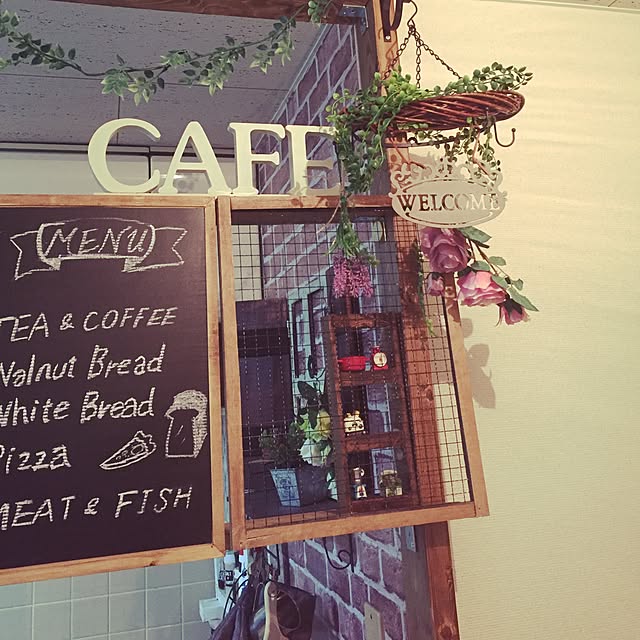 CAFE
WELCOME
MENU
TEA & COFFEE
Walnut Bread
White Bread
Pizza
MEAT & FISH